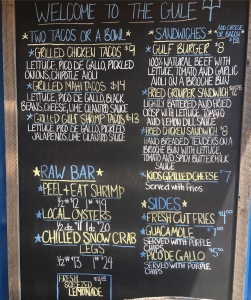 WELCOME TO THE GULF
*TWO TACOS OR A BOWL*
*GRILLED CHICKEN TACOS $9
LETTUCE, PICO DE GALLO, PICKLED
ONIONS, CHIPOTLE AIOLI
*GRILLED MAHI TACOS $14
LETTUCE, PICO DE GALLO, BLACK
BEANS, CHEESE, LIME CILANTRO SAUCE
*GRILLED GULF SHRIMP TACOS $13
LETTUCE, PICO DE GALLO, PICKLED
JALAPENOS, LIME CILANTRO SAUCE
*RAW BAR*
*PEEL+EAT SHRIMP
1/2 $12 1 $19
*LOCAL OYSTERS
1/2 dz $11 1 dz $20
*CHILLED SNOW CRAB
LEGS
1/2 $13 1 $24
FRESH
SQEEZED
LEMONADE
SANDWICHES*
ADD CHEESE
OR BACON
*GULF BURGER $8
100% NATURAL BEEF WITH
LETTUCE, TOMATO AND GARLIC
AIOLI ON A BRIOCHE BUN
*FRIED GROUPER SANDWICH
LIGHTLY BATTERED AND FRIED
CRISP WITH LETTUCE, TOMATO
AND LEMON DILL SAUCE
*FRIED CHICKEN SANDWICH $8
HAND BREADED TENDERS ON
A BRIOCHE BUN WITH LETTUCE,
TOMATO AND SPICY BUTTERMILK
SAUCE
*KIDS GRILLED CHEESE $7
SERVED WITH FRIES
*SIDES*
*FRESH CUT FRIES $4.00
*GUACAMOLE $7
SERVED WITH PURPLE
CHIPS
*PICO DE GALLO $5
SERVED WITH PURPLE
CHIPS